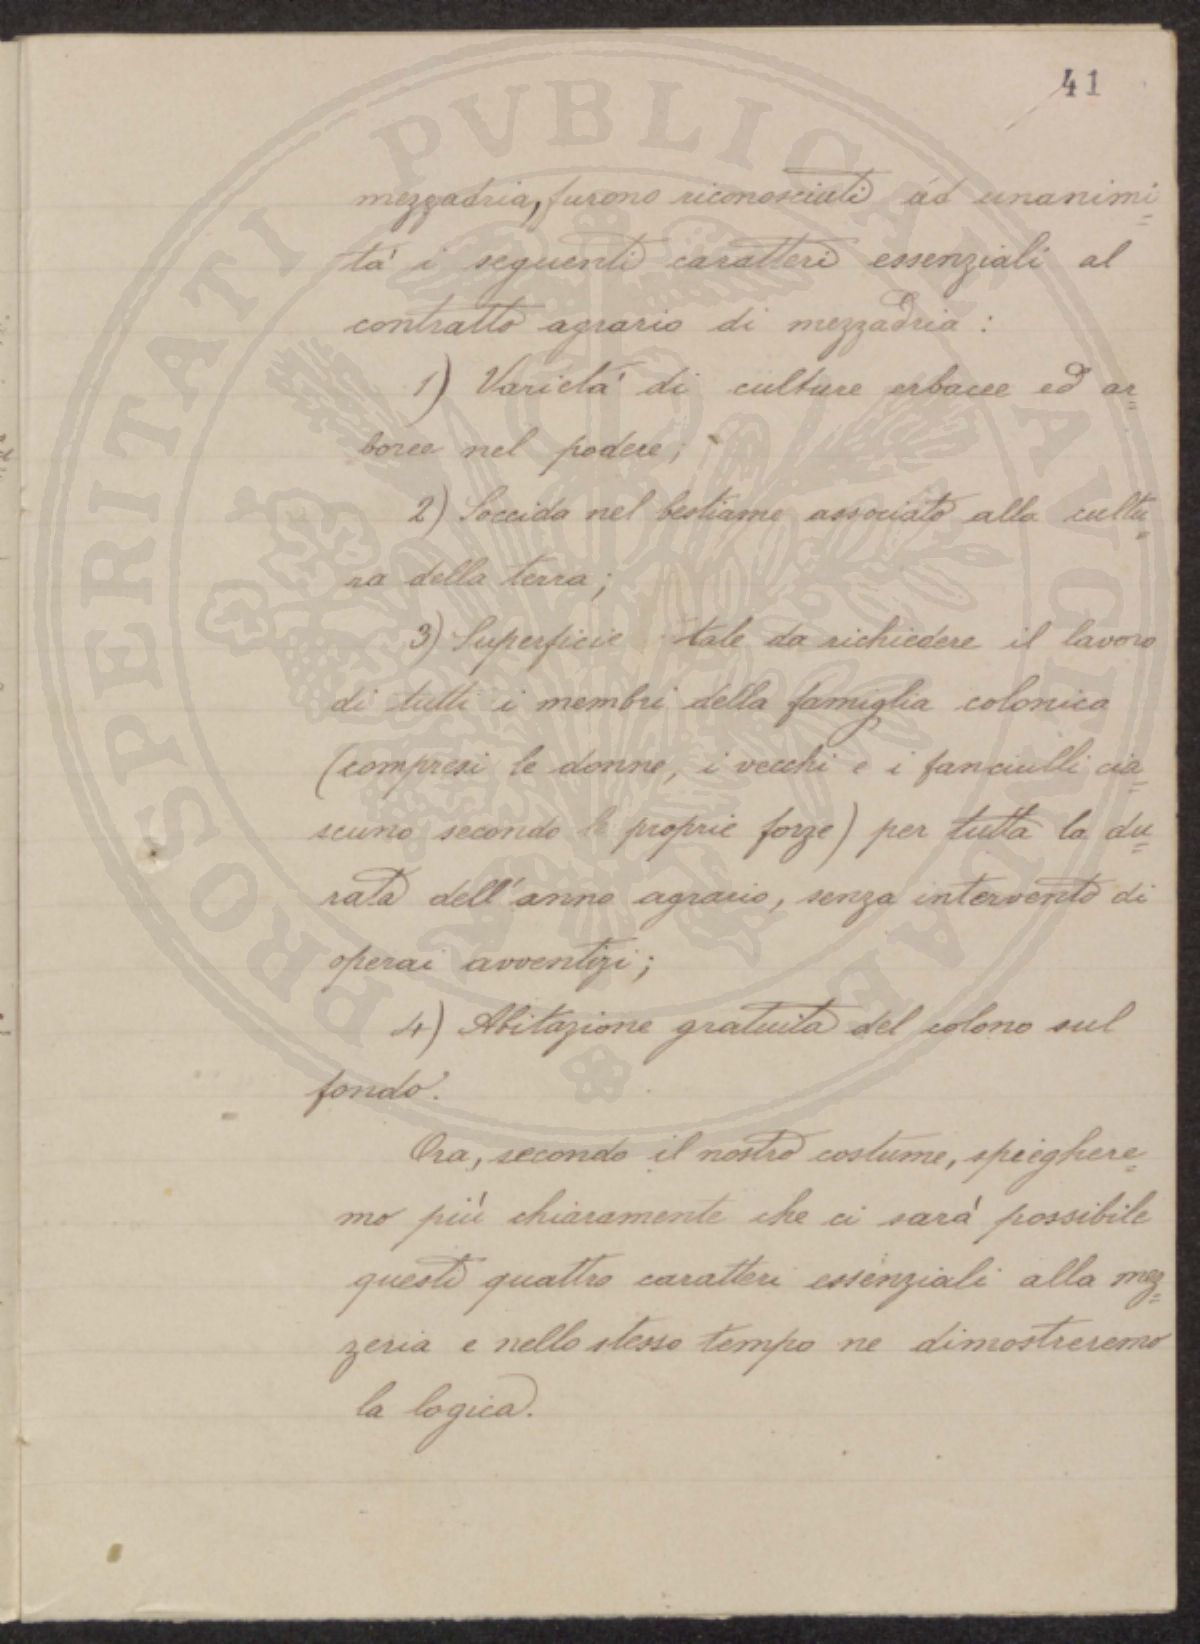 41
mezzadria, furono riconosciuti ad unanimi=
tà i seguenti caratteri essenziali al
contratto agrario di mezzadria:
1) Varietà di culture erbacee ed ar=
boree nel podere;
2) Soccida nel bestiame associato alla cultu=
ra della terra;
3) Superficie tale da richiedere il lavoro
di tutti i membri della famiglia colonica
(compresi le donne, i vecchi e i fanciulli cia=
scuno secondo le proprie forze) per tutta la du=
rata dell'anno agrario, senza intervento di
operai avventizi;
4) Abitazione gratuita del colono sul
fondo.
Ora, secondo il nostro costume, spieghere=
mo più chiaramente che ci sarà possibile
questi quattro caratteri essenziali alla mez=
zeria e nello stesso tempo ne dimostreremo
la logica.
PROSPERITATI PVBLICAE AVGENDAE